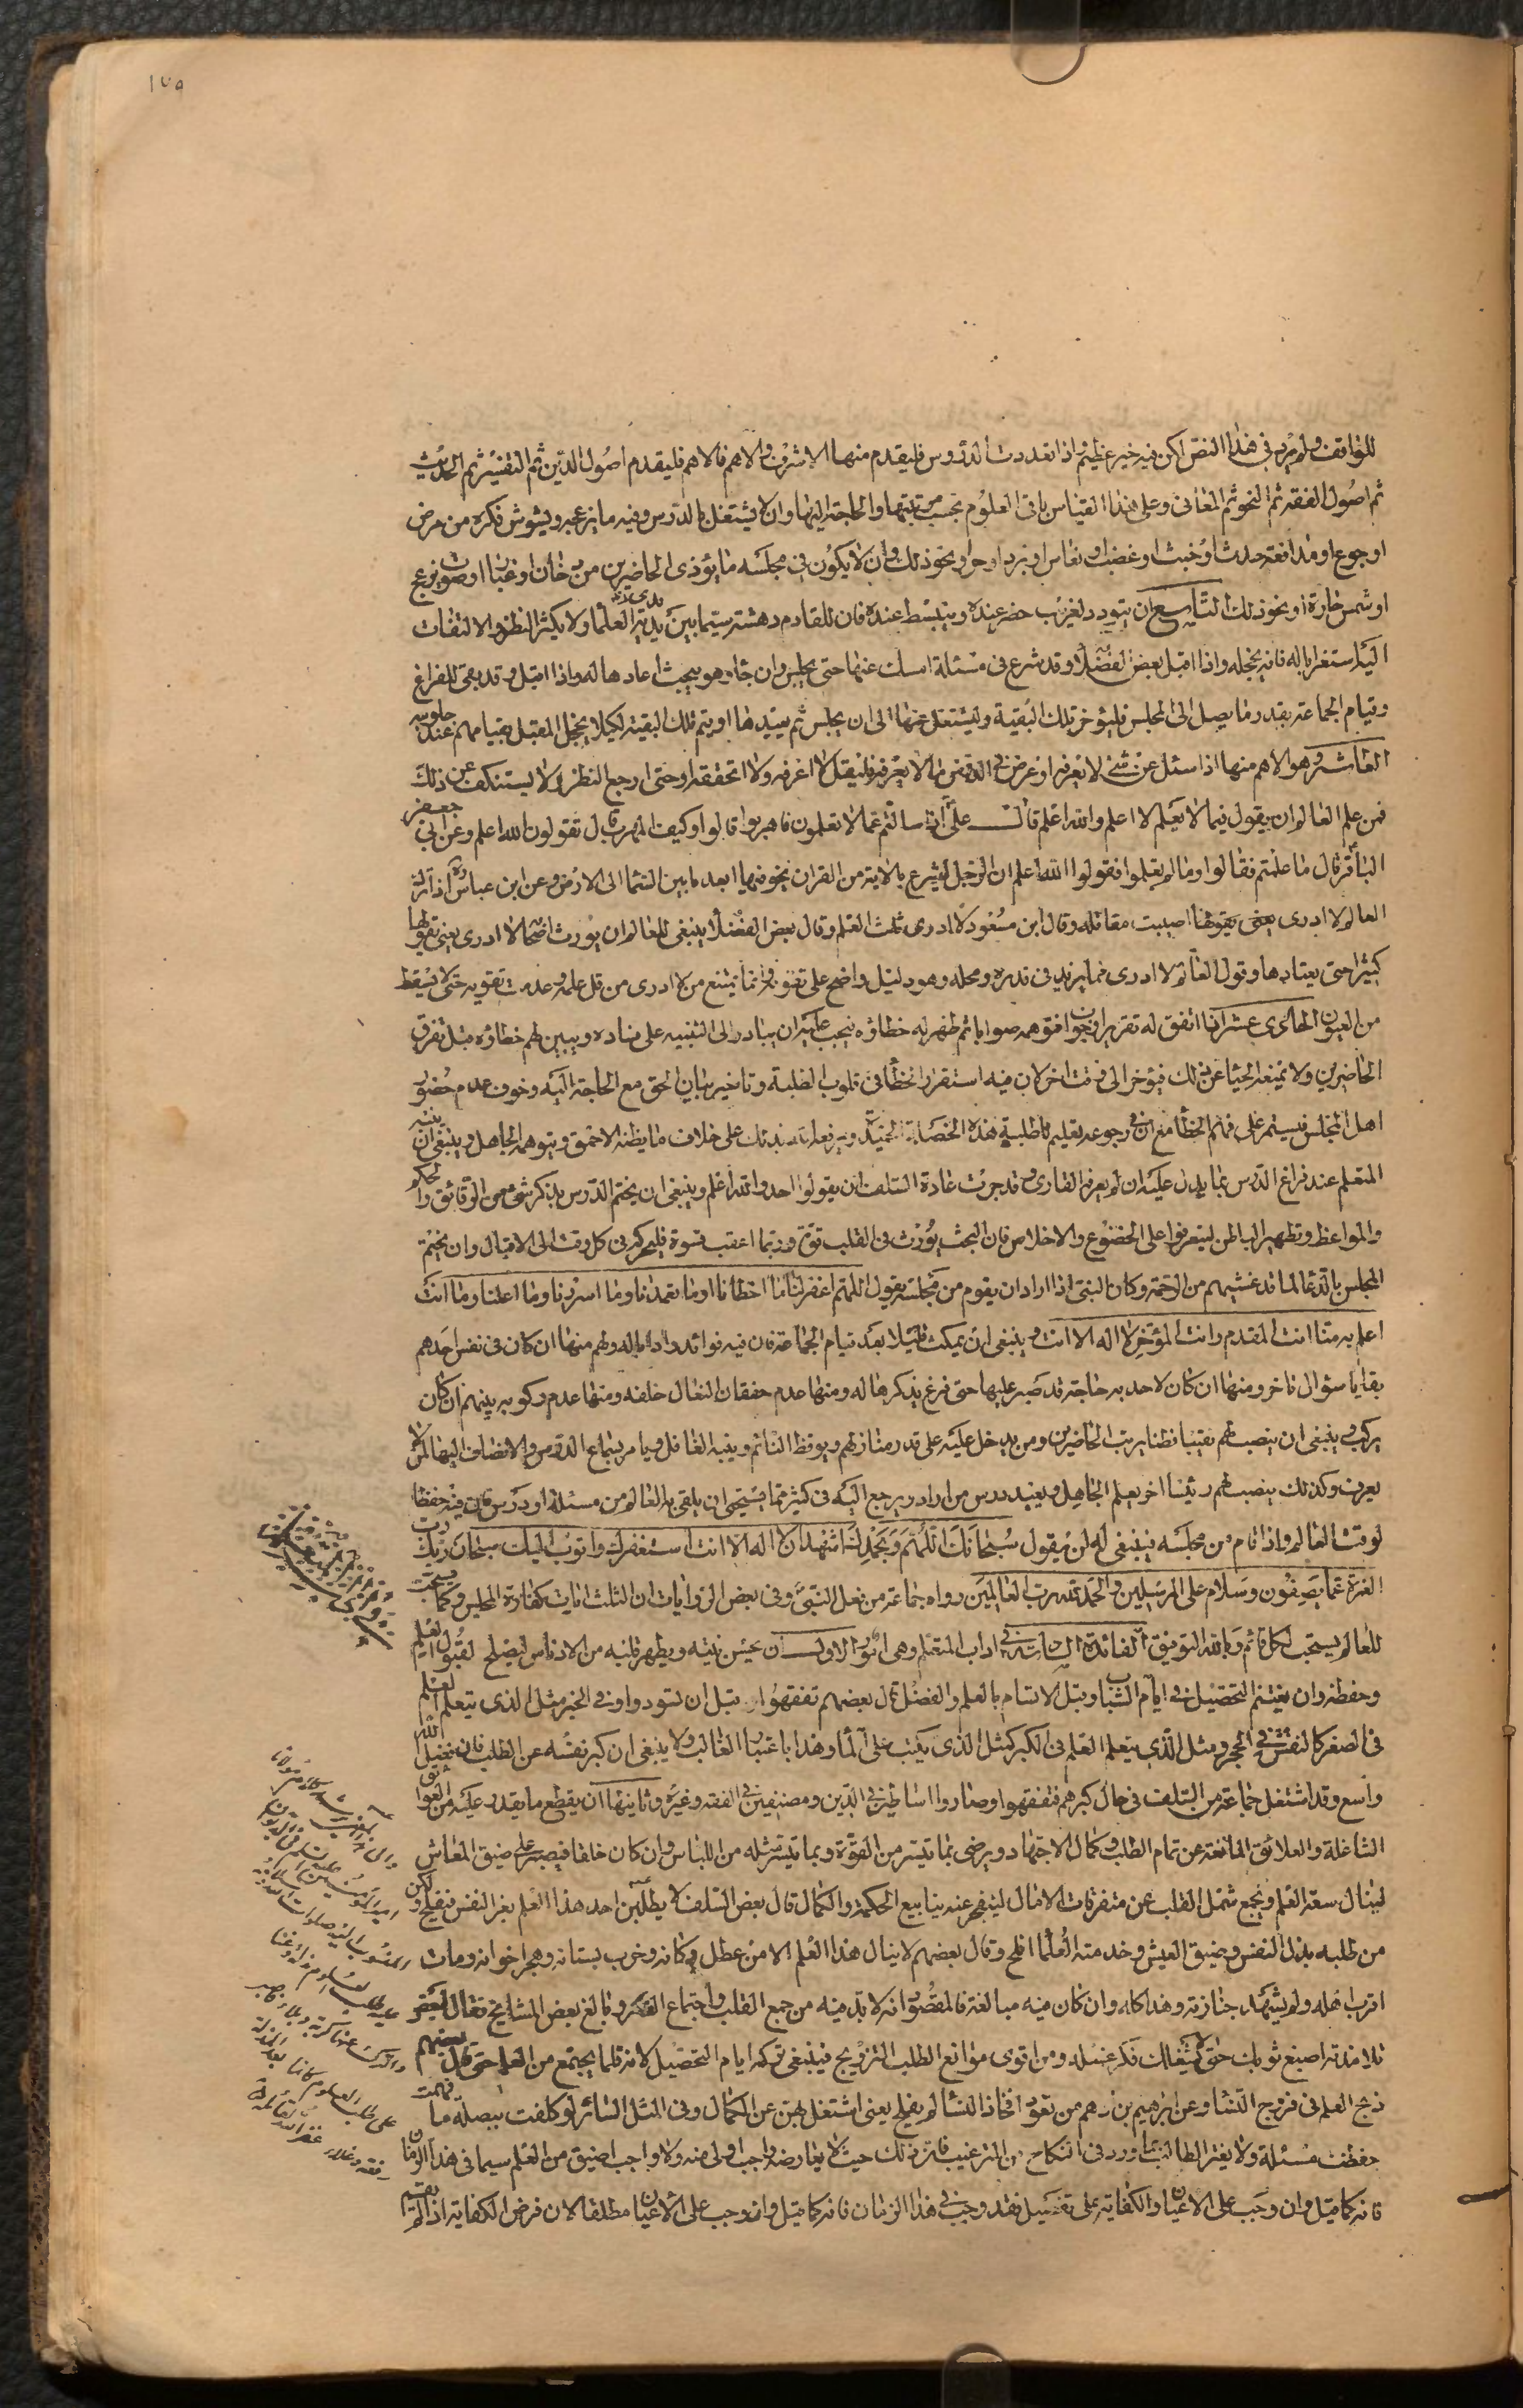 ١٧٥
للواقف ولم يرد في هذا النص لكن فيه خير عظيم اذا تعددت الدروس فليقدم منها الاشرف والاهم فالاهم فليقدم اصول الدين ثم التفسير ثم الحديث
ثم اصول الفقه ثم النحو ثم المعاني وعلى هذا القياس باقي العلوم بحسب مرتبتها والحاجة اليها وان لا يشتغل بالدرس وفيه ما يزعجه ويشوش فكره من مرض
او جوع او مدافعة حدث او خبث او غضب او نعاس او برد او حر او نحو ذلك وان لا يكون في مجلسه ما يؤذي الحاضرين من دخان او غبار او صوت مزعج
او شمس حارة او نحو ذلك التاسع ان يتودد لغريب حضر عنده وينبسط عنده فان للقادم دهشة سيما بين يدي العلما ولا يكثر النظر والالتفات
اليه استغرابا له فانه يخجله واذا اقبل بعض الفضلا وقد شرع في مسئلة امسك عنها حتى يجلس وان جاء وهو يبحث اعادها له واذا اقبل وقد بقى للفراغ
وقيام الجماعة بقدر ما يصل الى المجلس فليؤخر تلك البقية وليشتغل عنها الى ان يجلس ثم يعيدها او يتم تلك البقية لكيلا يخجل المقبل بقيامهم عند جلوسه
العاشر وهو الاهم منها اذا سئل عن شئ لا يعرفه او عرض في الدرس ما لا يعرفه فليقل لا اعرفه ولا اتحققه او حتى ارجع النظر ولا يستنكف عن ذلك
فمن علم العالم ان يقول فيما لا يعلم لا اعلم والله اعلم قال علي اذا سالتم عما لا تعلمون فاهربوا قالوا وكيف الهرب قال تقولون الله اعلم وعن ابي جعفر
الباقر قال ما علمتم فقالوا وما لم تعلموا فقولوا الله اعلم ان الرجل ليشرع بالاية من القران يخر فيها ابعد ما بين السما الى الارض وعن ابن عباس اذا ترك
العالم لا ادري اصيبت مقاتله وقال ابن مسعود لا ادري ثلث العلم وقال بعض الفضلا ينبغي للعالم ان يورث اصحابه لا ادري يعني يقولها
كثيرا حتى يعتادوها وقول العالم لا ادري مما يزيد في قدره ومحله وهو دليل واضح على تقواه وانما يمتنع من لا ادري من قل علمه وعدمت تقويه حتى لا يسقط
من العيون الحادي عشر انه اذا اتفق له تقرير او جواب توهمه صوابا ثم ظهر له خطاؤه فيجب عليه ان يبادر الى التنبيه على فساده ويبين لهم خطاؤه قبل تفرق
الحاضرين ولا يمنعه الحيا عن ذلك فيؤخر الى وقت اخر لان فيه استقرار الخطأ في قلوب الطلبة وتاخير بيان الحق مع الحاجة اليه وخوف عدم حضور
اهل المجلس فيستمر على فهم الخطأ مع ان في رجوعه تعليم للطلبة هذه الخصلة الحميدة ويرفعه الله بذلك على خلاف ما يظنه الاحمق ويتوهمه الجاهل وينبغي ان ينبه
المتعلم عند فراغ الدرس بما يدل عليه ان لم يعرفه القاري وقد جرت عادة السلف ان يقولوا احد والله اعلم وينبغي ان يختم الدرس بذكر شئ من الرقائق والحكم
والمواعظ وتطهير الباطن ليتفرقوا على الخضوع والاخلاص فان البحث يورث في القلب قوة وربما اعقب قسوة فليحركه في كل وقت الى الاقبال وان يختم
المجلس بالدعا لما قد غشيهم من الرحمة وكان النبي اذا اراد ان يقوم من مجلسه يقول اللهم اغفر لنا ما اخطانا وما تعمدنا وما اسررنا وما اعلنا وما انت
اعلم به منا انت المقدم وانت المؤخر لا اله الا انت وينبغي ان يمكث قليلا بعد قيام الجماعة فان فيه فوائد وادابا له ولهم منها ان كان في نفس احدهم
بقايا سؤال تاخر ومنها ان كان لاحد به حاجة قد صبر عليها حتى فرغ يذكرها له ومنها عدم خفقان النعال خلفه ومنها عدم ركوبه بينهم ان كان
يركب وينبغي ان ينصب لهم نقيبا فطنا يرتب الحاضرين ومن يدخل عليه على قدر منازلهم ويوقظ النائم وينبه الغافل ويامر بسماع الدروس والانصات اليها لمن لا
يعرف وكذلك ينصب لهم رئيسا اخر يعلم الجاهل ويعيد درس من اراد ويرجع اليه في كثير مما يستحيى ان يلقى به العالم من مسئلة او درس فان فيه حفظا
لوقت العالم واذا قام من مجلسه فينبغي له ان يقول سبحانك اللهم وبحمدك اشهد ان لا اله الا انت استغفرك واتوب اليك سبحان ربك رب
العزة عما يصفون وسلام على المرسلين والحمد لله رب العالمين رواه جماعة من فعل النبي وفي بعض الروايات ان الثلث ايات كفارة المجلس وكما يستحب
للعالم يستحب لكل قائم وبالله التوفيق الفائدة الثامنة في اداب المتعلم وهي امور الاول ان يحسن نيته ويطهر قلبه من الادناس ليصلح لقبول العلم
وحفظه وان يغتنم التحصيل في ايام الشباب وقبل الاتسام بالعلم والفضل قال بعضهم تفقهوا قبل ان تسودوا وفي الخبر مثل الذي يتعلم العلم
في الصغر كالنقش في الحجر ومثل الذي يتعلم العلم في الكبر كمثل الذي يكتب على الما وهذا باعتبار الغالب ولا ينبغي ان كبر نفسه عن الطلب فان فضل الله
واسع وقد اشتغل جماعة من السلف في حال كبرهم فتفقهوا وصاروا اساطين في الدين ومصنفين في الفقه وغيره وثانيها ان يقطع ما يقدر عليه من العوائق
الشاغلة والعلائق المانعة عن تمام الطلب وكمال الاجتهاد ويرضى بما تيسر من القوة وبما تيسر مثله من اللباس وان كان خلقا فيصبر على ضيق المعاش
لينال سعة العلم ويجمع شمل القلب عن متفرقات الامال ليتفجر عنه ينابيع الحكمة والكمال قال بعض السلف لا يطلبن احد هذا العلم بعز النفس فيفلح ولكن
من طلبه بذل النفس وضيق العيش وخدمة العلما افلح وقال بعضهم لا ينال هذا العلم الا من عطل دكانه وخرب بستانه وهجر اخوانه ومات
اقرب اهله ولم يشهد جنازته وهذا كله وان كان فيه مبالغة فالمقصود انه لا بد فيه من جمع القلب واجتماع الفكر وبالغ بعض المشايخ فقال لبعض
تلامذته اصبغ ثوبك حتى لا يشغلك فكر غسله ومن اقوى موانع الطلب التزويج فينبغي تركه ايام التحصيل لانه قلما يجتمع من العلم حتى قال بعضهم
ذبح العلم في فروج النسا وعن ابراهيم بن ادهم من تعود افخاذ النسا لم يفلح يعني اشتغل بهن عن الكمال وفي المثل السائر لو كلفت ببصلة ما فهمت
حفظت مسئلة ولا يغتر الطالب بما ورد في النكاح من الترغيب فان ذلك حيث لا يعارضه واجب اولى منه ولا واجب اضيق من العلم سيما في هذا الزمان
فانه كما قيل وان وجب على الاعيان او الكفاية على تفصيل فقد وجب في هذا الزمان فانه كما قيل وان وجب على الاعيان مطلقا لان فرض الكفاية اذا لم يقم